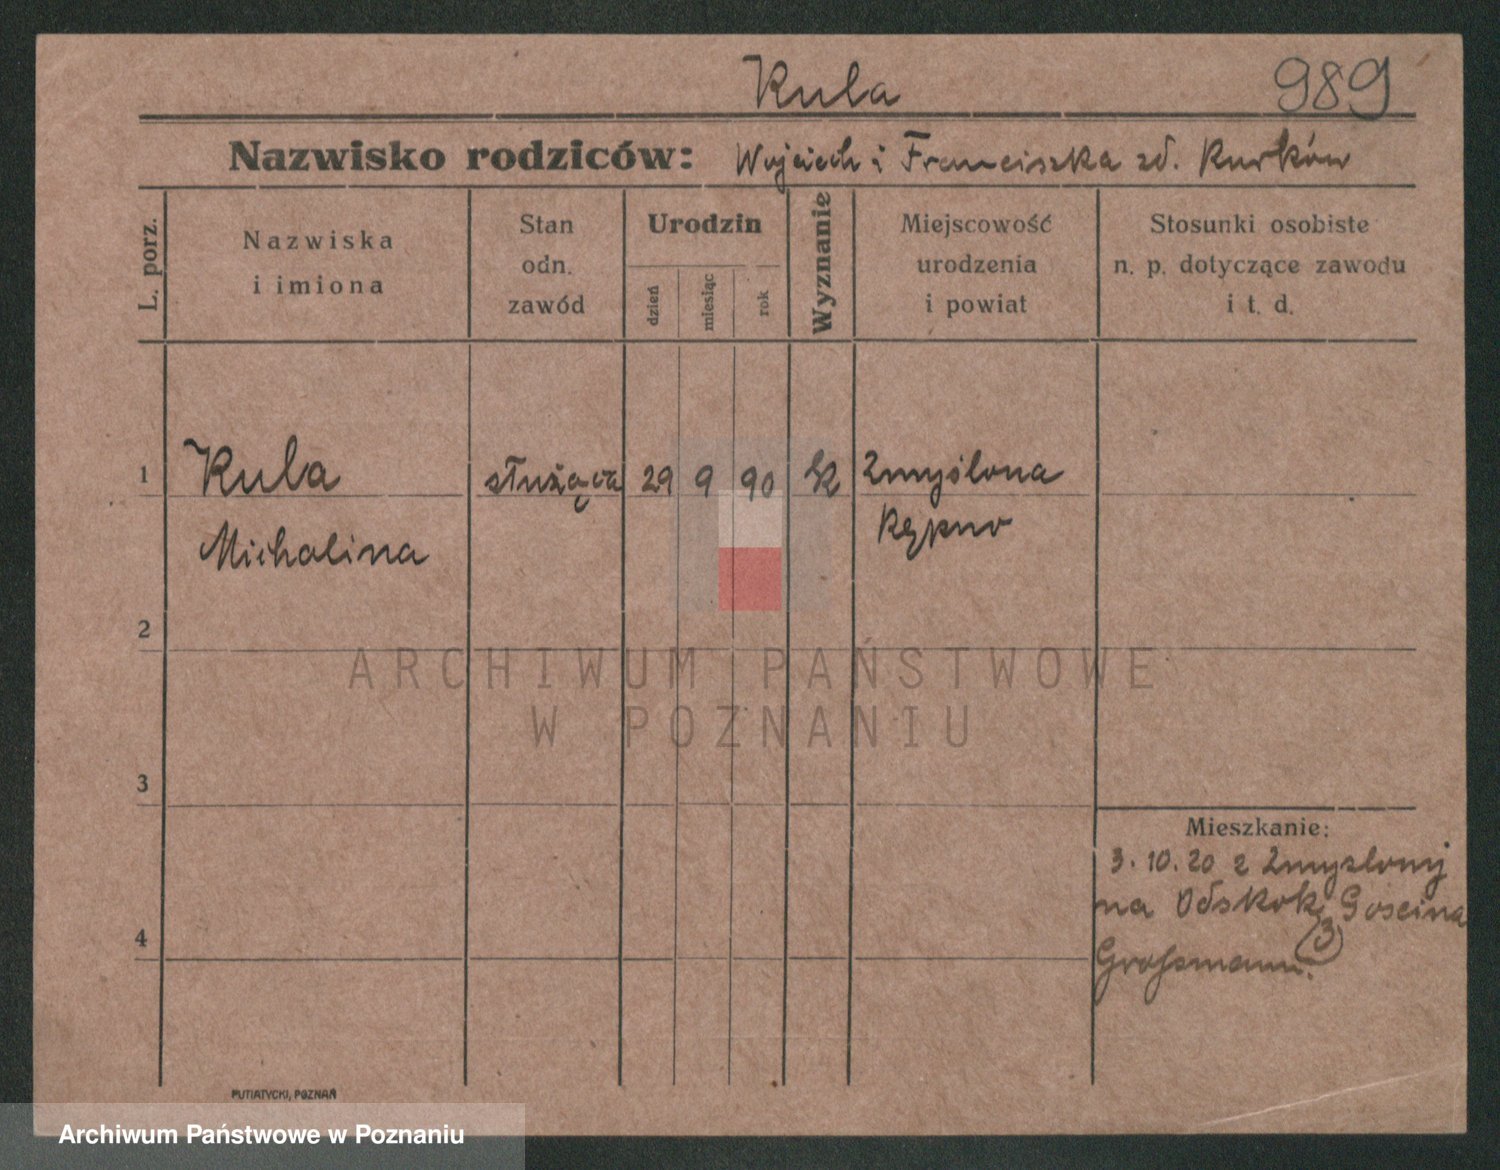 Kula 989
Nazwisko rodziców: Wojciech i Franciszka zd. Kurków
L. porz.
Nazwiska
i imiona
Stan
odn.
zawód
Urodzin
dzień
miesiąc
rok
Wyznanie
Miejscowość
urodzenia
i powiat
Stosunki osobiste
n. p. dotyczące zawodu
i t. d.
1 Kula służąca 29 9 90 k Zmyślona
Michalina Kępno
2
3
4
Mieszkanie:
3.10.20 z Zmyslony
na Odskok Goscina
3
Großmann.
PUTIATYCKI, POZNAŃ
ARCHIWUM PAŃSTWOWE
W POZNANIU
Archiwum Państwowe w Poznaniu